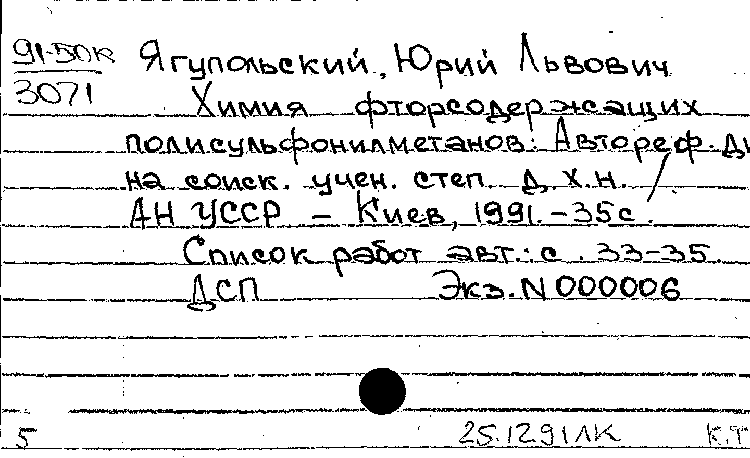 91-50к Ягупольский, Юрий Львович
3071
Химия фторсодержащих
полисульфонилметанов: Автореф. ди
на соиск. учен. степ. д.х.н. /
АН УССР – Киев, 1991. – 35с.
Список работ авт.: с. 33–35
ДСП Экз. N 000006
5 25.12.91 ЛК К.Т